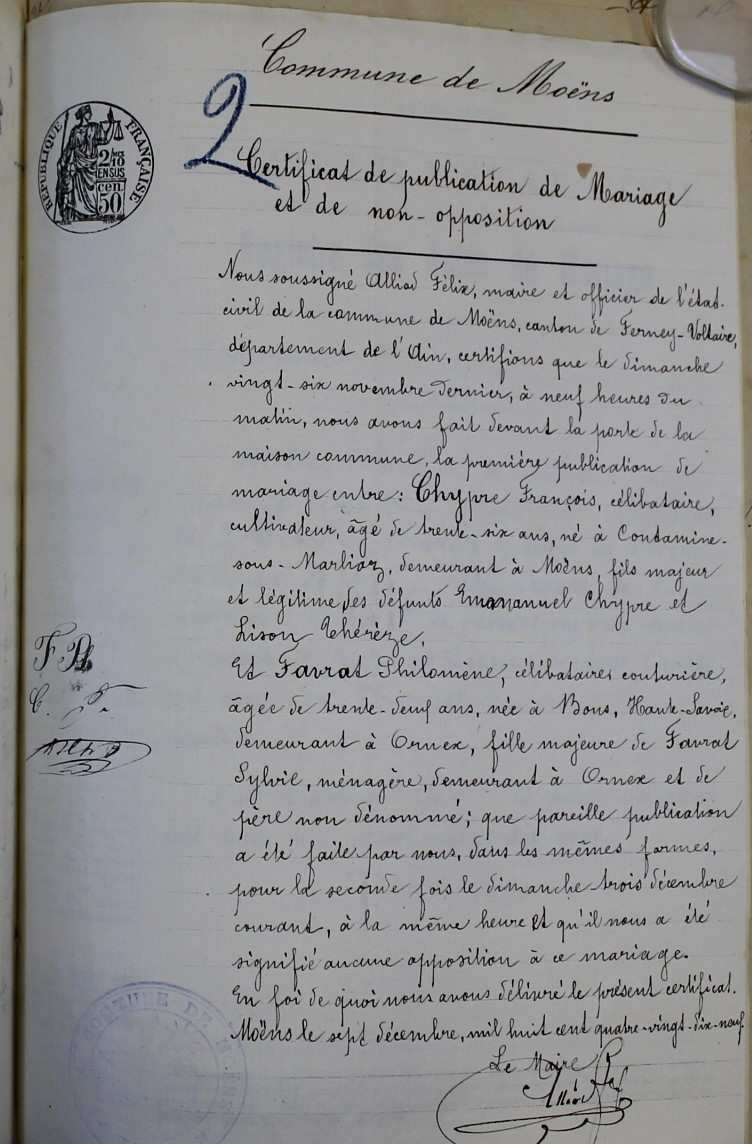 Commune de Moëns
2
RÉPUBLIQUE FRANÇAISE
2/10
EN SUS
50 cen
Certificat de publication de Mariage
et de non-opposition
Nous soussigné Alliod Félix, maire et officier de l'état-
civil de la commune de Moëns, canton de Ferney-Voltaire,
département de l'Ain, certifions que le dimanche
vingt-six novembre dernier, à neuf heures du
matin, nous avons fait devant la porte de la
maison commune, la première publication de
mariage entre: Chypre François, célibataire,
cultivateur, âgé de trente-six ans, né à Contamine-
sous-Marlioz, demeurant à Moëns, fils majeur
et légitime des défunts Emmanuel Chypre et
Lison Thérèze.
Et Favrat Philomène, célibataire, couturière,
âgée de trente-deuf ans, née à Bons, Haute-Savoie,
demeurant à Ornex, fille majeure de Favrat
Sylvie, ménagère, demeurant à Ornex et de
père non dénommé; que pareille publication
a été faite par nous, dans les mêmes formes,
pour la seconde fois le dimanche trois décembre
courant, à la même heure et qu'il nous a été
signifié aucune opposition à ce mariage.
En foi de quoi nous avons délivré le présent certificat.
Moëns le sept décembre, mil huit cent quatre-vingt-dix-neuf.
Le Maire
Alliod